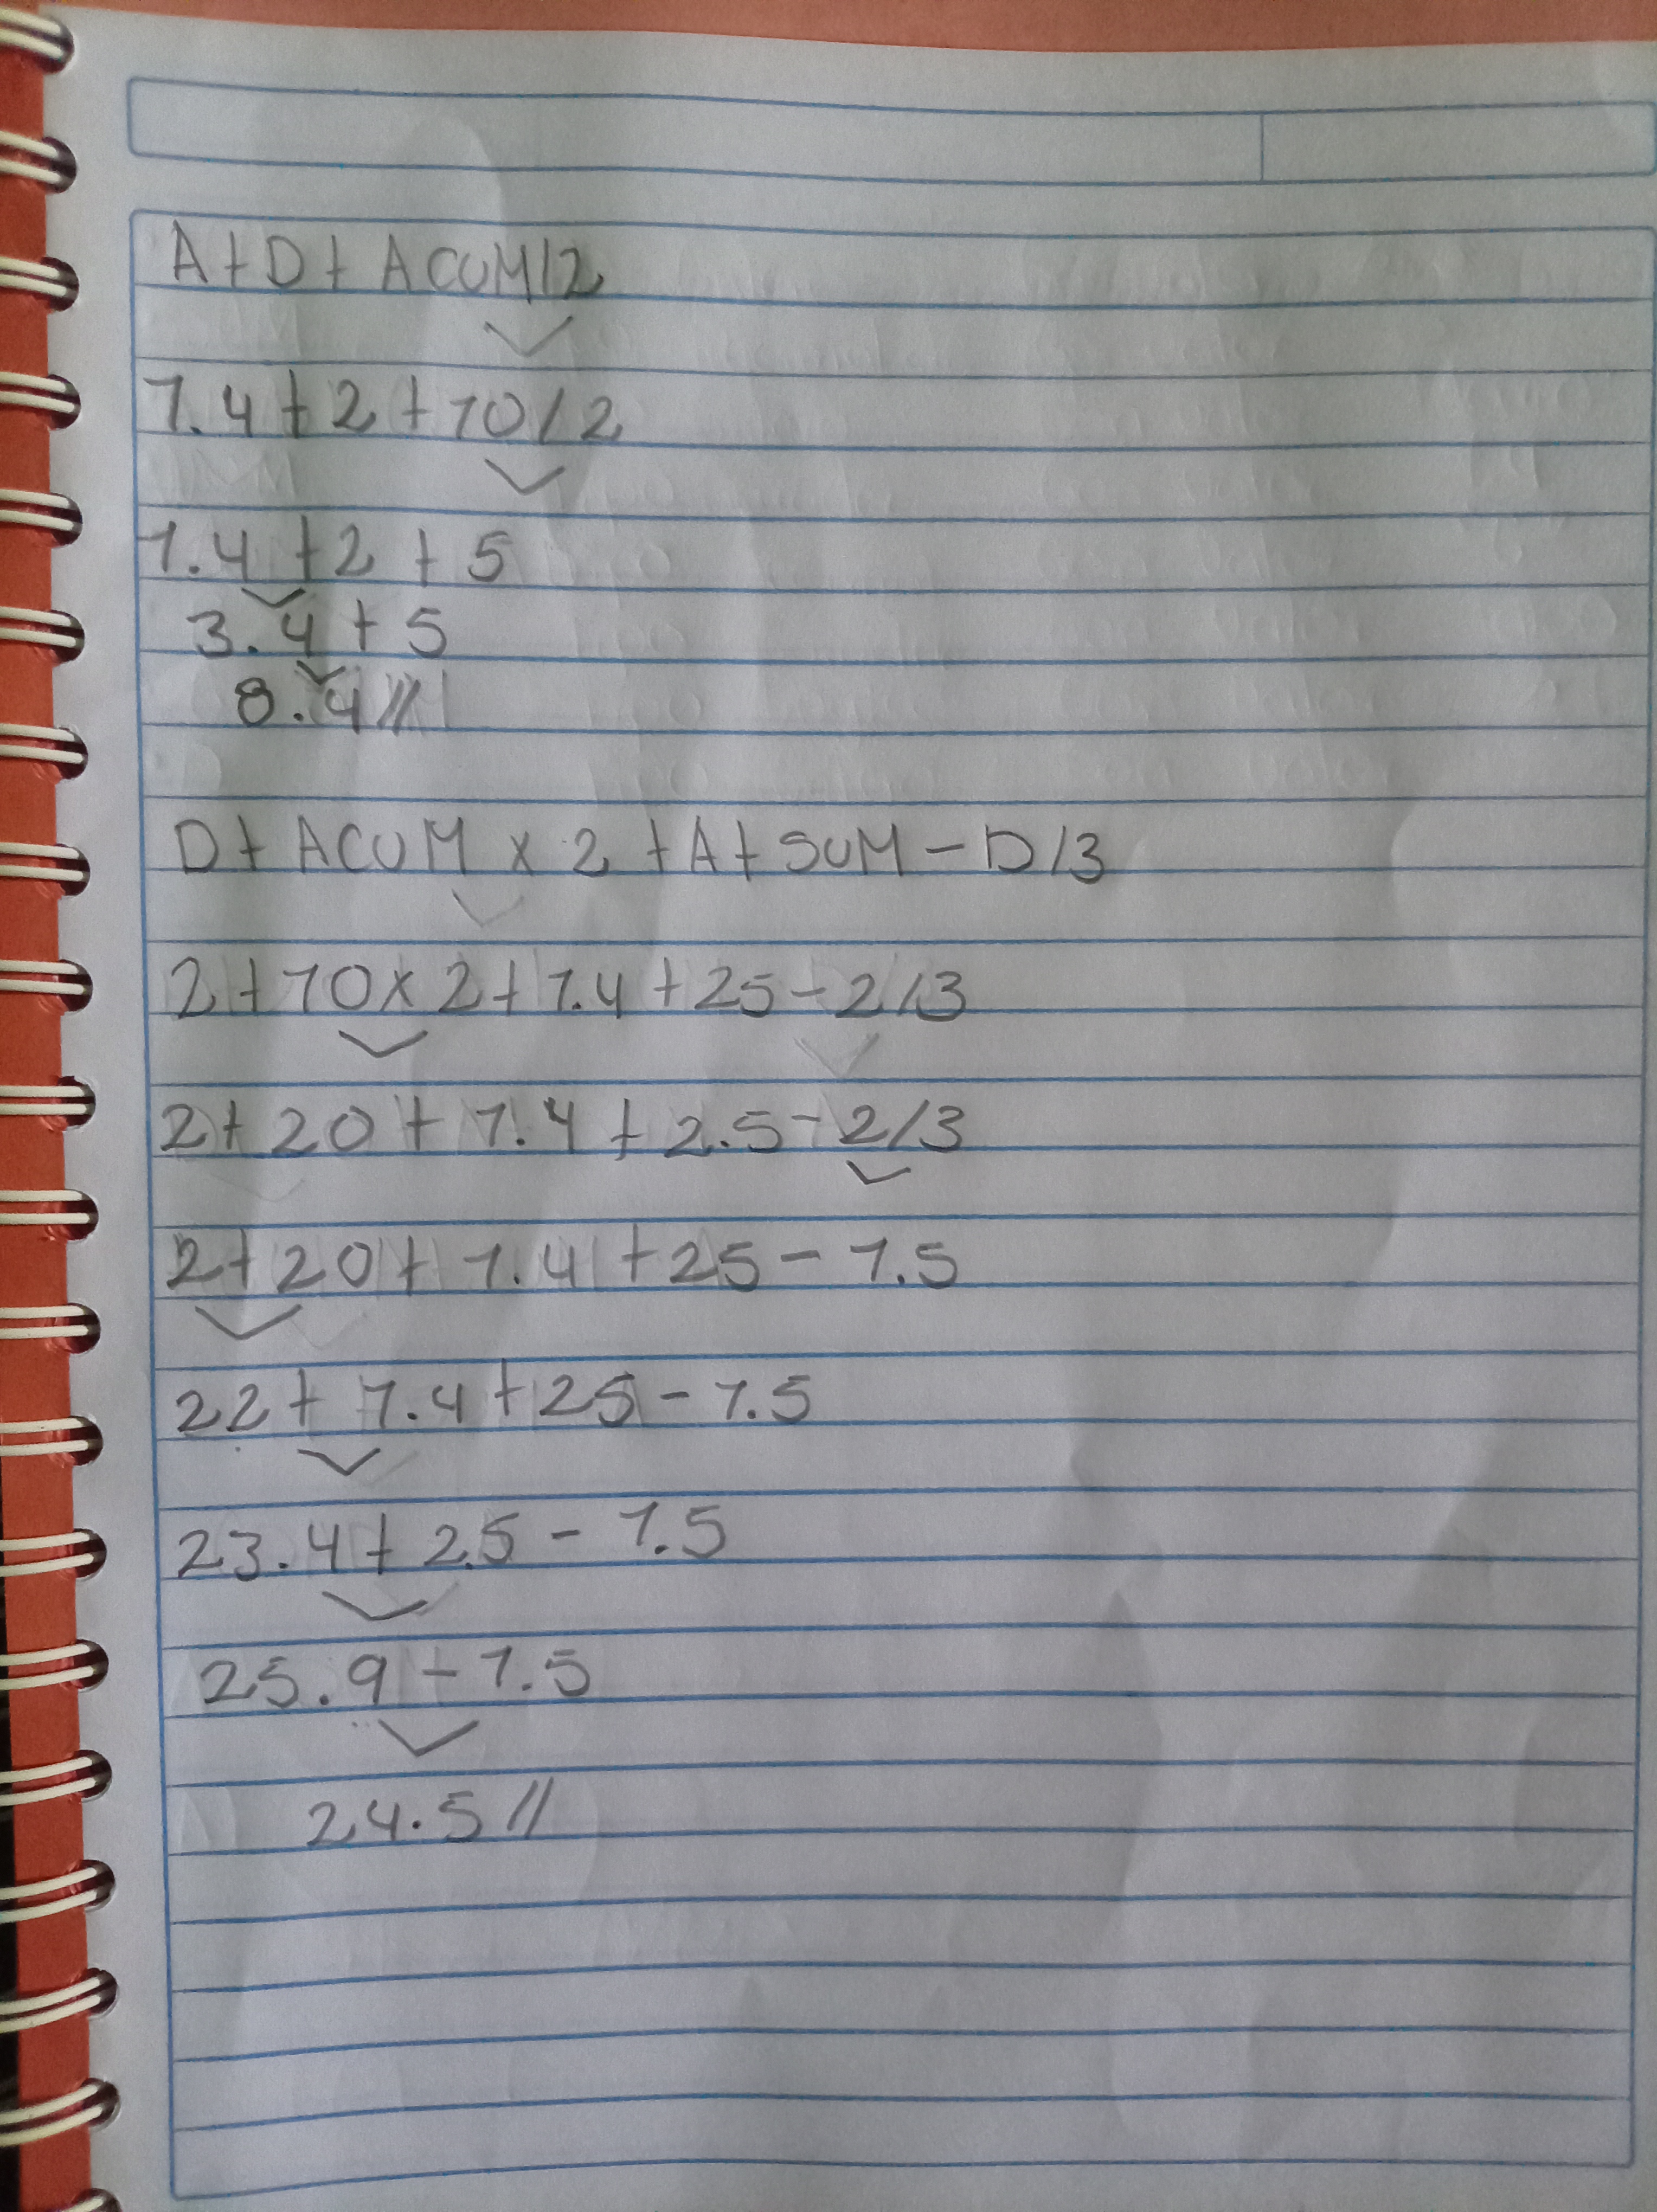 A + D + ACUM/2
1.4 + 2 + 10 / 2
1.4 + 2 + 5
3.4 + 5
8.4 //
D + ACUM x 2 + A + SUM - D/3
2 + 10 x 2 + 1.4 + 25 - 2/3
2 + 20 + 1.4 + 2.5 - 2/3
2 + 20 + 1.4 + 25 - 1.5
22 + 1.4 + 25 - 1.5
23.4 + 2.5 - 1.5
25.9 - 1.5
24.5 //